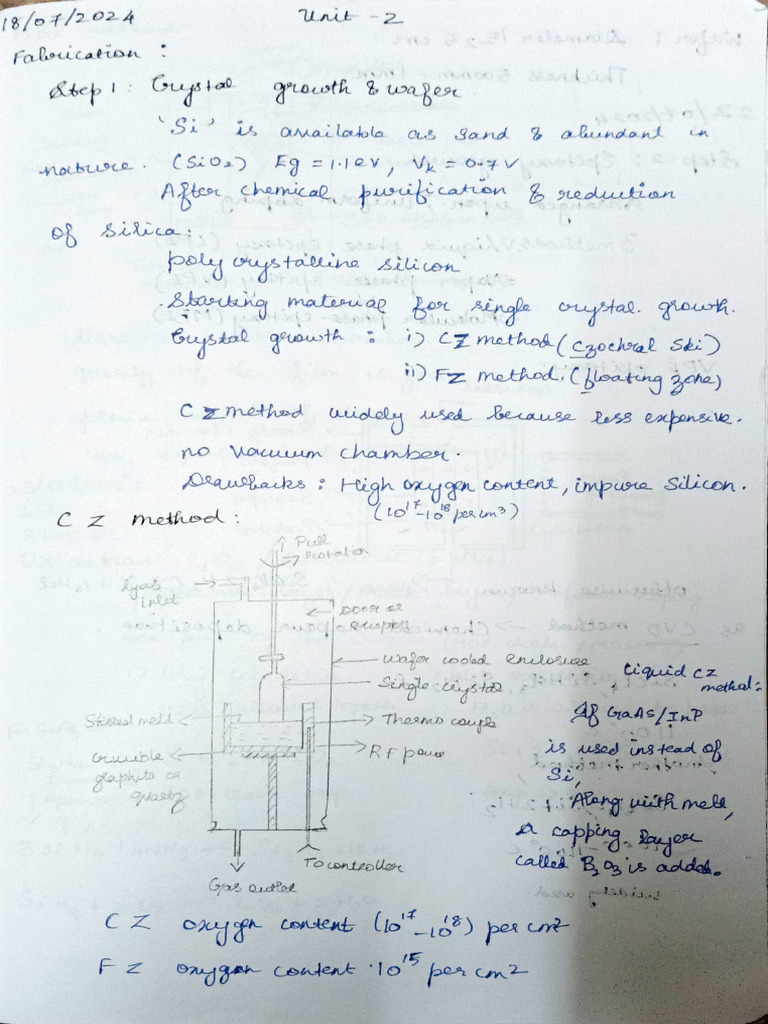 18/07/2024
Unit - 2
Fabrication :
Step 1 : Crystal growth & wafer
'Si' is available as sand & abundant in
nature. (SiO2) Eg = 1.1 eV, Vk = 0.7 V
After chemical purification & reduction
of silica:
poly crystalline silicon
Starting material for single crystal growth.
Crystal growth : i) CZ method (Czochral Ski)
ii) FZ method. (floating zone)
CZ method widely used because less expensive.
no vacuum chamber.
Drawbacks : High oxygen content, impure Silicon.
(10^17 - 10^18 per cm^3)
CZ method :
Pull
rotation
Gas
inlet
Door or
wafer cooled enclosure
Single crystal
Stirred melt
Thermo couple
RF power
crucible
graphite or
quartz
To controller
Gas outlet
Liquid CZ
method :
If GaAs/InP
is used instead of
Si,
Along with melt,
a capping layer
called B2O3 is added.
CZ oxygen content (10^17 - 10^18) per cm^2
FZ oxygen content 10^15 per cm^2